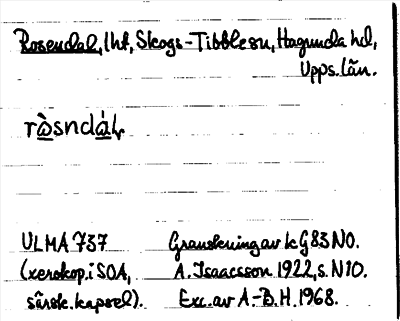 Rosendal, lht, Skogs-Tibble sn, Hagunda hd,
Upps. län.
ròsndáḷ
ULMA 737 Granskning av k G 83 NO.
(xerokop. i SOA, A. Isaacsson 1922, s. N 10.
särsk. kapsel). Exc. av A.-B. H. 1968.